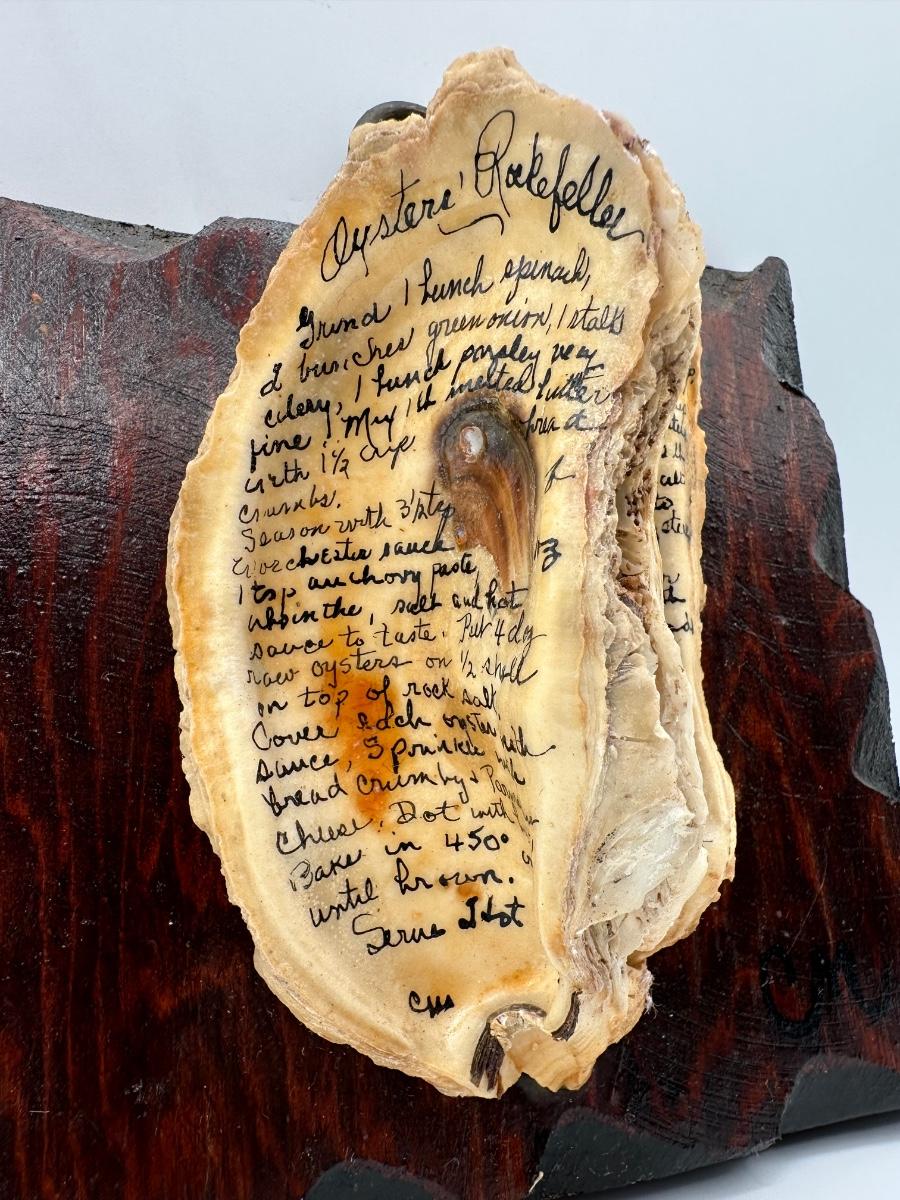 Oysters' Rockefeller
Grind 1 bunch spinach,
2 bunches green onion, 1 stalk
celery, 1 bunch parsley very
fine. Mix 1 lb melted butter
with 1½ cup bread
crumbs.
Season with 3 tsp
worchester sauce
1 tsp anchovy paste,
absinthe, salt and hot
sauce to taste. Put 4 dog
raw oysters on ½ shell
on top of rock salt
Cover each oyster with
sauce, Sprinkle with
bread crumbs +
cheese. Dot with
Bake in 450°
until brown.
Serve Hot
CMS
CM